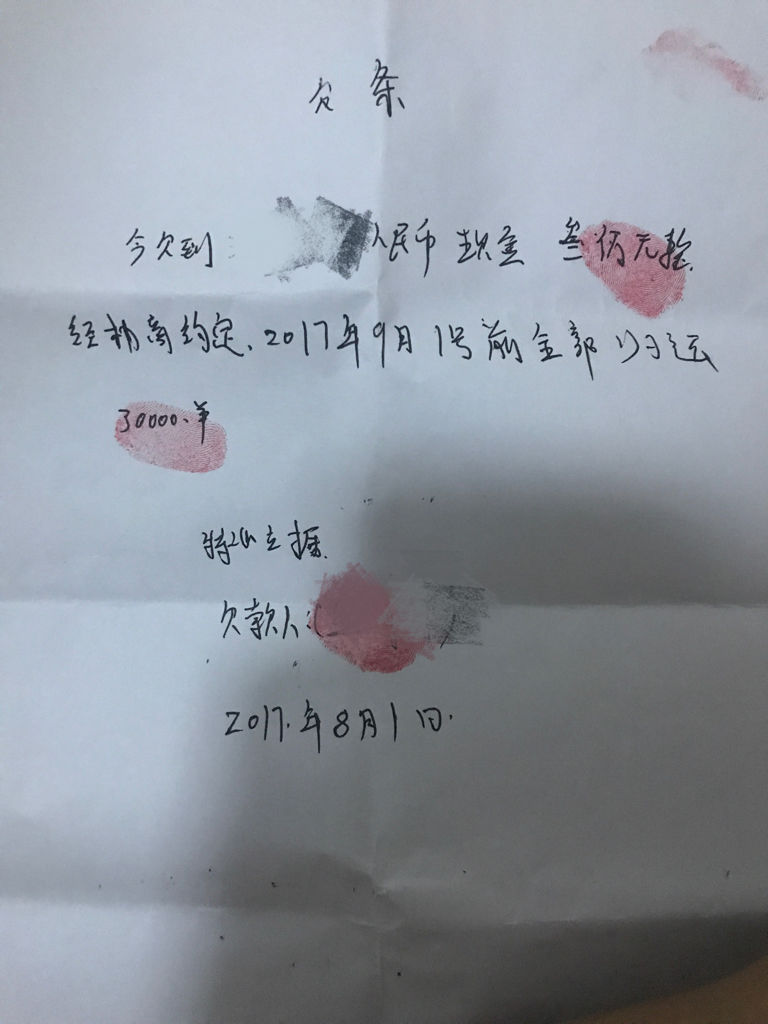 欠条
今欠到: 人民币 现金 叁万元整
经协商约定、2017年9月1号前全部归还
30000.¥
特此立据.
欠款人:
2017.年8月1日.